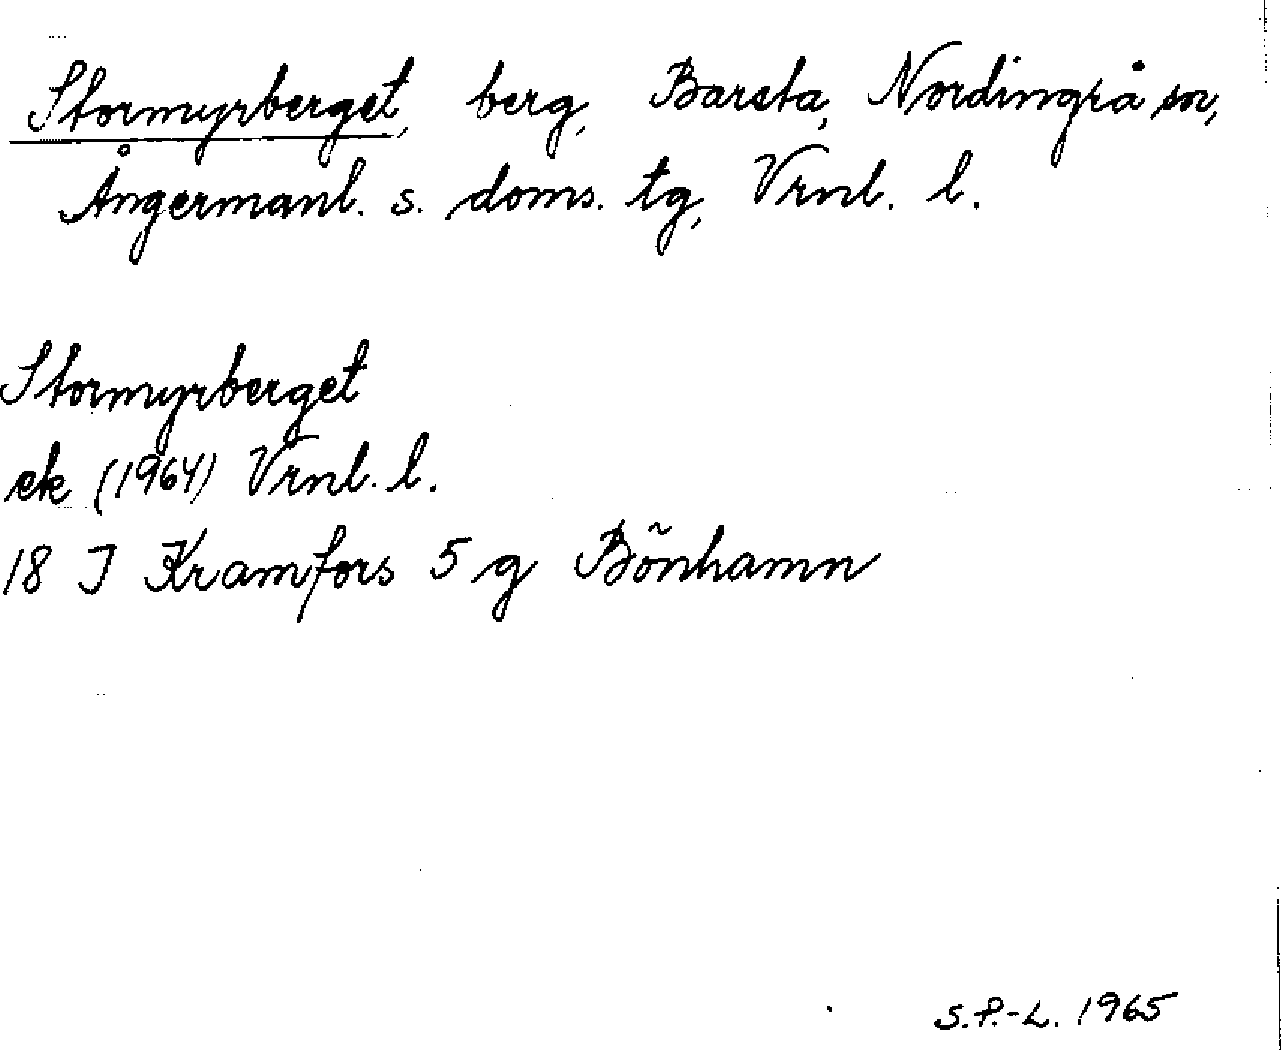 Stormyrberget, berg, Barsta, Nordingrå sn,
Ångermanl. s. doms. tg, Vrnl. l.
Stormyrberget
ek (1964) Vrnl. l.
18 J Kramfors 5 g Bönhamn
S.P.-L. 1965